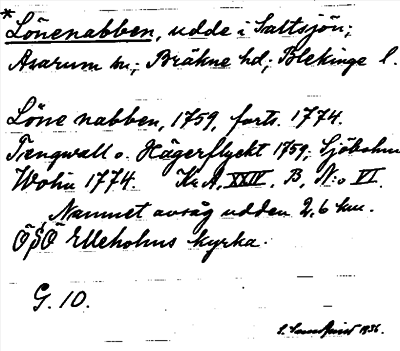 * Lönenabben, udde i Saltsjön;
Asarum sn; Bräkne hd; Blekinge l.
Löne nabben, 1759, forts. 1774.
Tengwall o. Hägerflyckt 1759; Sjöbohm
1774. Kr. A, XXIV, B, N:o VI.
Namnet avsåg udden 2,6 km.
ÖSÖ Elleholms kyrka.
G. 10.
1936.